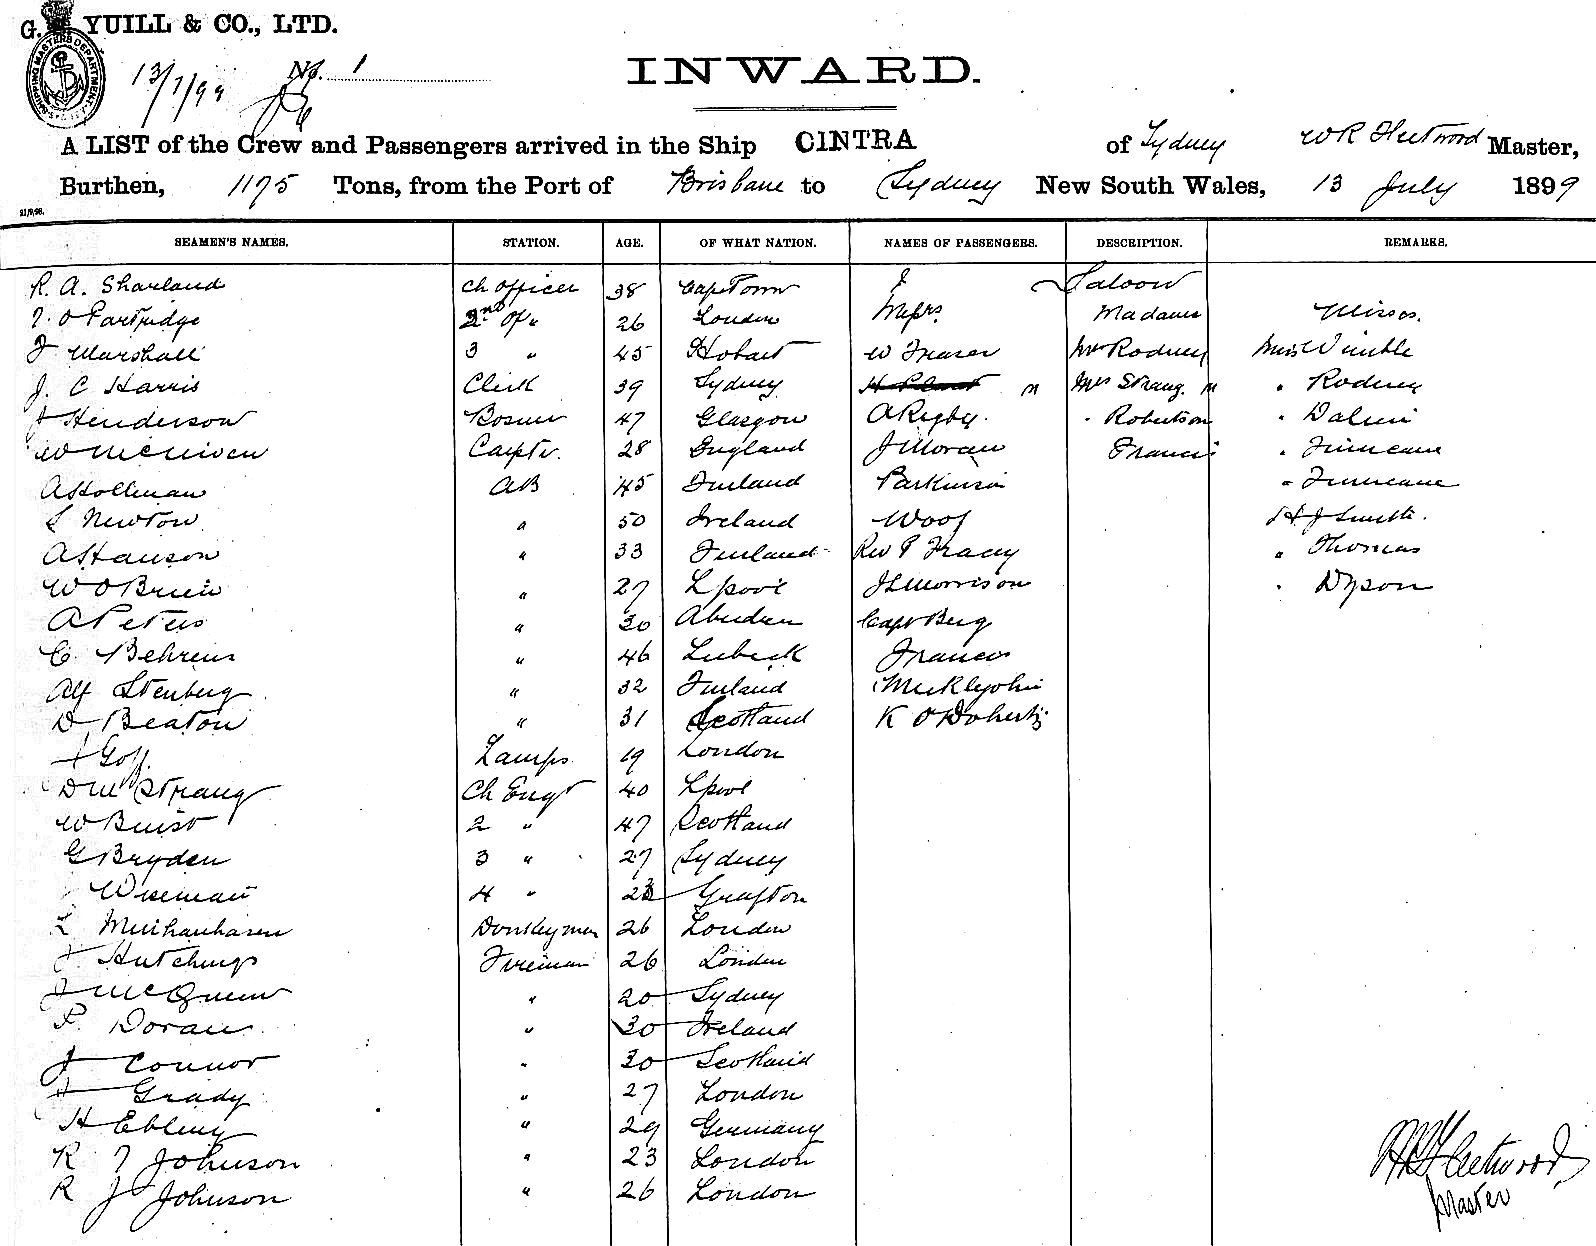 G. YUILL & CO., LTD.
SHIPPING MASTERS DEPARTMENT
13/7/99 No. 1
INWARD.
A LIST of the Crew and Passengers arrived in the Ship CINTRA of Sydney W R Fleetwood Master,
Burthen, 1175 Tons, from the Port of Brisbane to Sydney New South Wales, 13 July 1899
21/9/98.
SEAMEN'S NAMES. STATION. AGE. OF WHAT NATION. NAMES OF PASSENGERS. DESCRIPTION. REMARKS.
R. A. Sharland Ch Officer 38 Cape Town Saloon
Partridge 2nd Of " 26 London Messrs. Madames Misses.
J Marshall 3 " 45 Hobart W Fraser Mrs Rodney Miss Wimble
J. C Harris Clerk 39 Sydney Mrs Strang. " Rodney
J Henderson Bosun 47 Glasgow A Rigby. " Robertson "
W McNiven Carptr. 28 England J Moran Francis " Finneane
A Hollman AB 45 Finland Parkinson " Finneane
S Newton " 50 Ireland Woof H J Smith.
A Hanson " 33 Finland Rev P Tracey " Thomas
W O Brien " 27 Lpool J L Morrison " Dyson
A Peters " 30 Aberdeen Capt Berg
C. Behrens " 46 Lubeck Francis
Alf Stenberg " 32 Finland Micklejohn
D Beaton " 31 Scotland K O'Doherty
Goff. Lamps 19 London
D M Strang Ch Engr 40 Lpool
W Buist 2 " 47 Scotland
G Bryden 3 " 27 Sydney
Wiseman 4 " 23 Grafton
L Donkeyman 26 London
J. Hutchings Fireman 26 London
J McQueen " 20 Sydney
P. Doran " 30 Ireland
J Connor " 30 Scotland
Grady " 27 London
H Ebling " 29 Germany
R T Johnson " 23 London
R J Johnson " 26 London
W R Fleetwood
Master